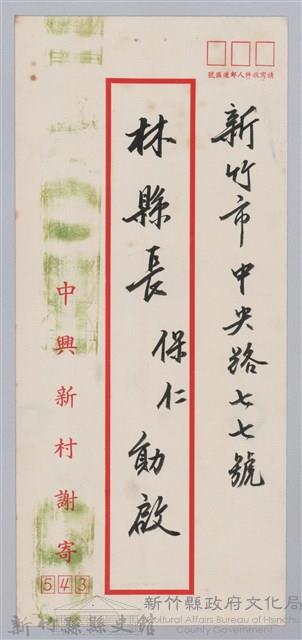 請寫收件人郵遞區號
新竹市中央路七七號
林縣長保仁勛啟
中興新村謝寄
543
新竹縣政府文化局
Cultural Affairs Bureau of Hsinchu
County Government
新竹縣縣史館